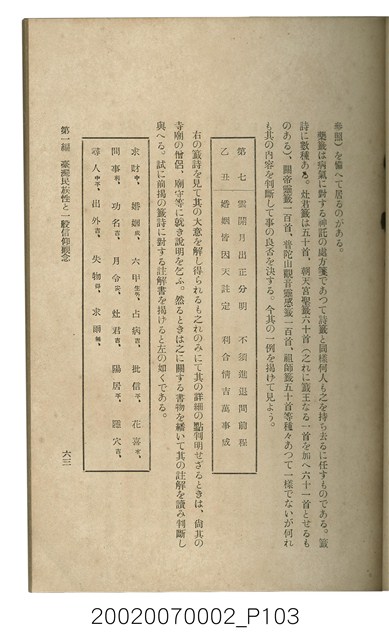 參照)を備へて居るのがある。
藥籤は病氣に對する神託の處方箋であつて詩籤と同樣何人も之を持ち去るに任すものである。籤
詩に數種ある。灶君籤は五十首、朝天宮聖籤六十首(之れに籤王なる一首を加へ六十一首とせるも
のある)、關帝靈籤一百首、普陀山觀音靈感籤一百首、祖師籤五十首等種々あつて一樣でないが何れ
も其の內容を判斷して事の良否を決する。今其の一例を揭げて見よう。
第七 雲開月出正分明 不須進退問前程
乙丑 婚姻皆因天註定 和合情吉萬事成
右の籤詩を見て其の大意を解し得られるも之れのみにて其の詳細の點判明せざるときは、尙其の
寺廟の僧侶、廟守等に就き說明を乞ふ。然るときは之に關する書物を繙いて其の註解を讀み判斷し
與へる。試に前揭の籤詩に對する註解書を揭げると左の如くである。
求財 婚姻 六甲 占病吉、 批信 花喜
問事 功名吉、 月令 灶君吉、 陽居平、 陰穴吉、
尋人 出外吉、 失物 求雨
第一編 臺灣民族性と一般信仰觀念
六三
20020070002_P103